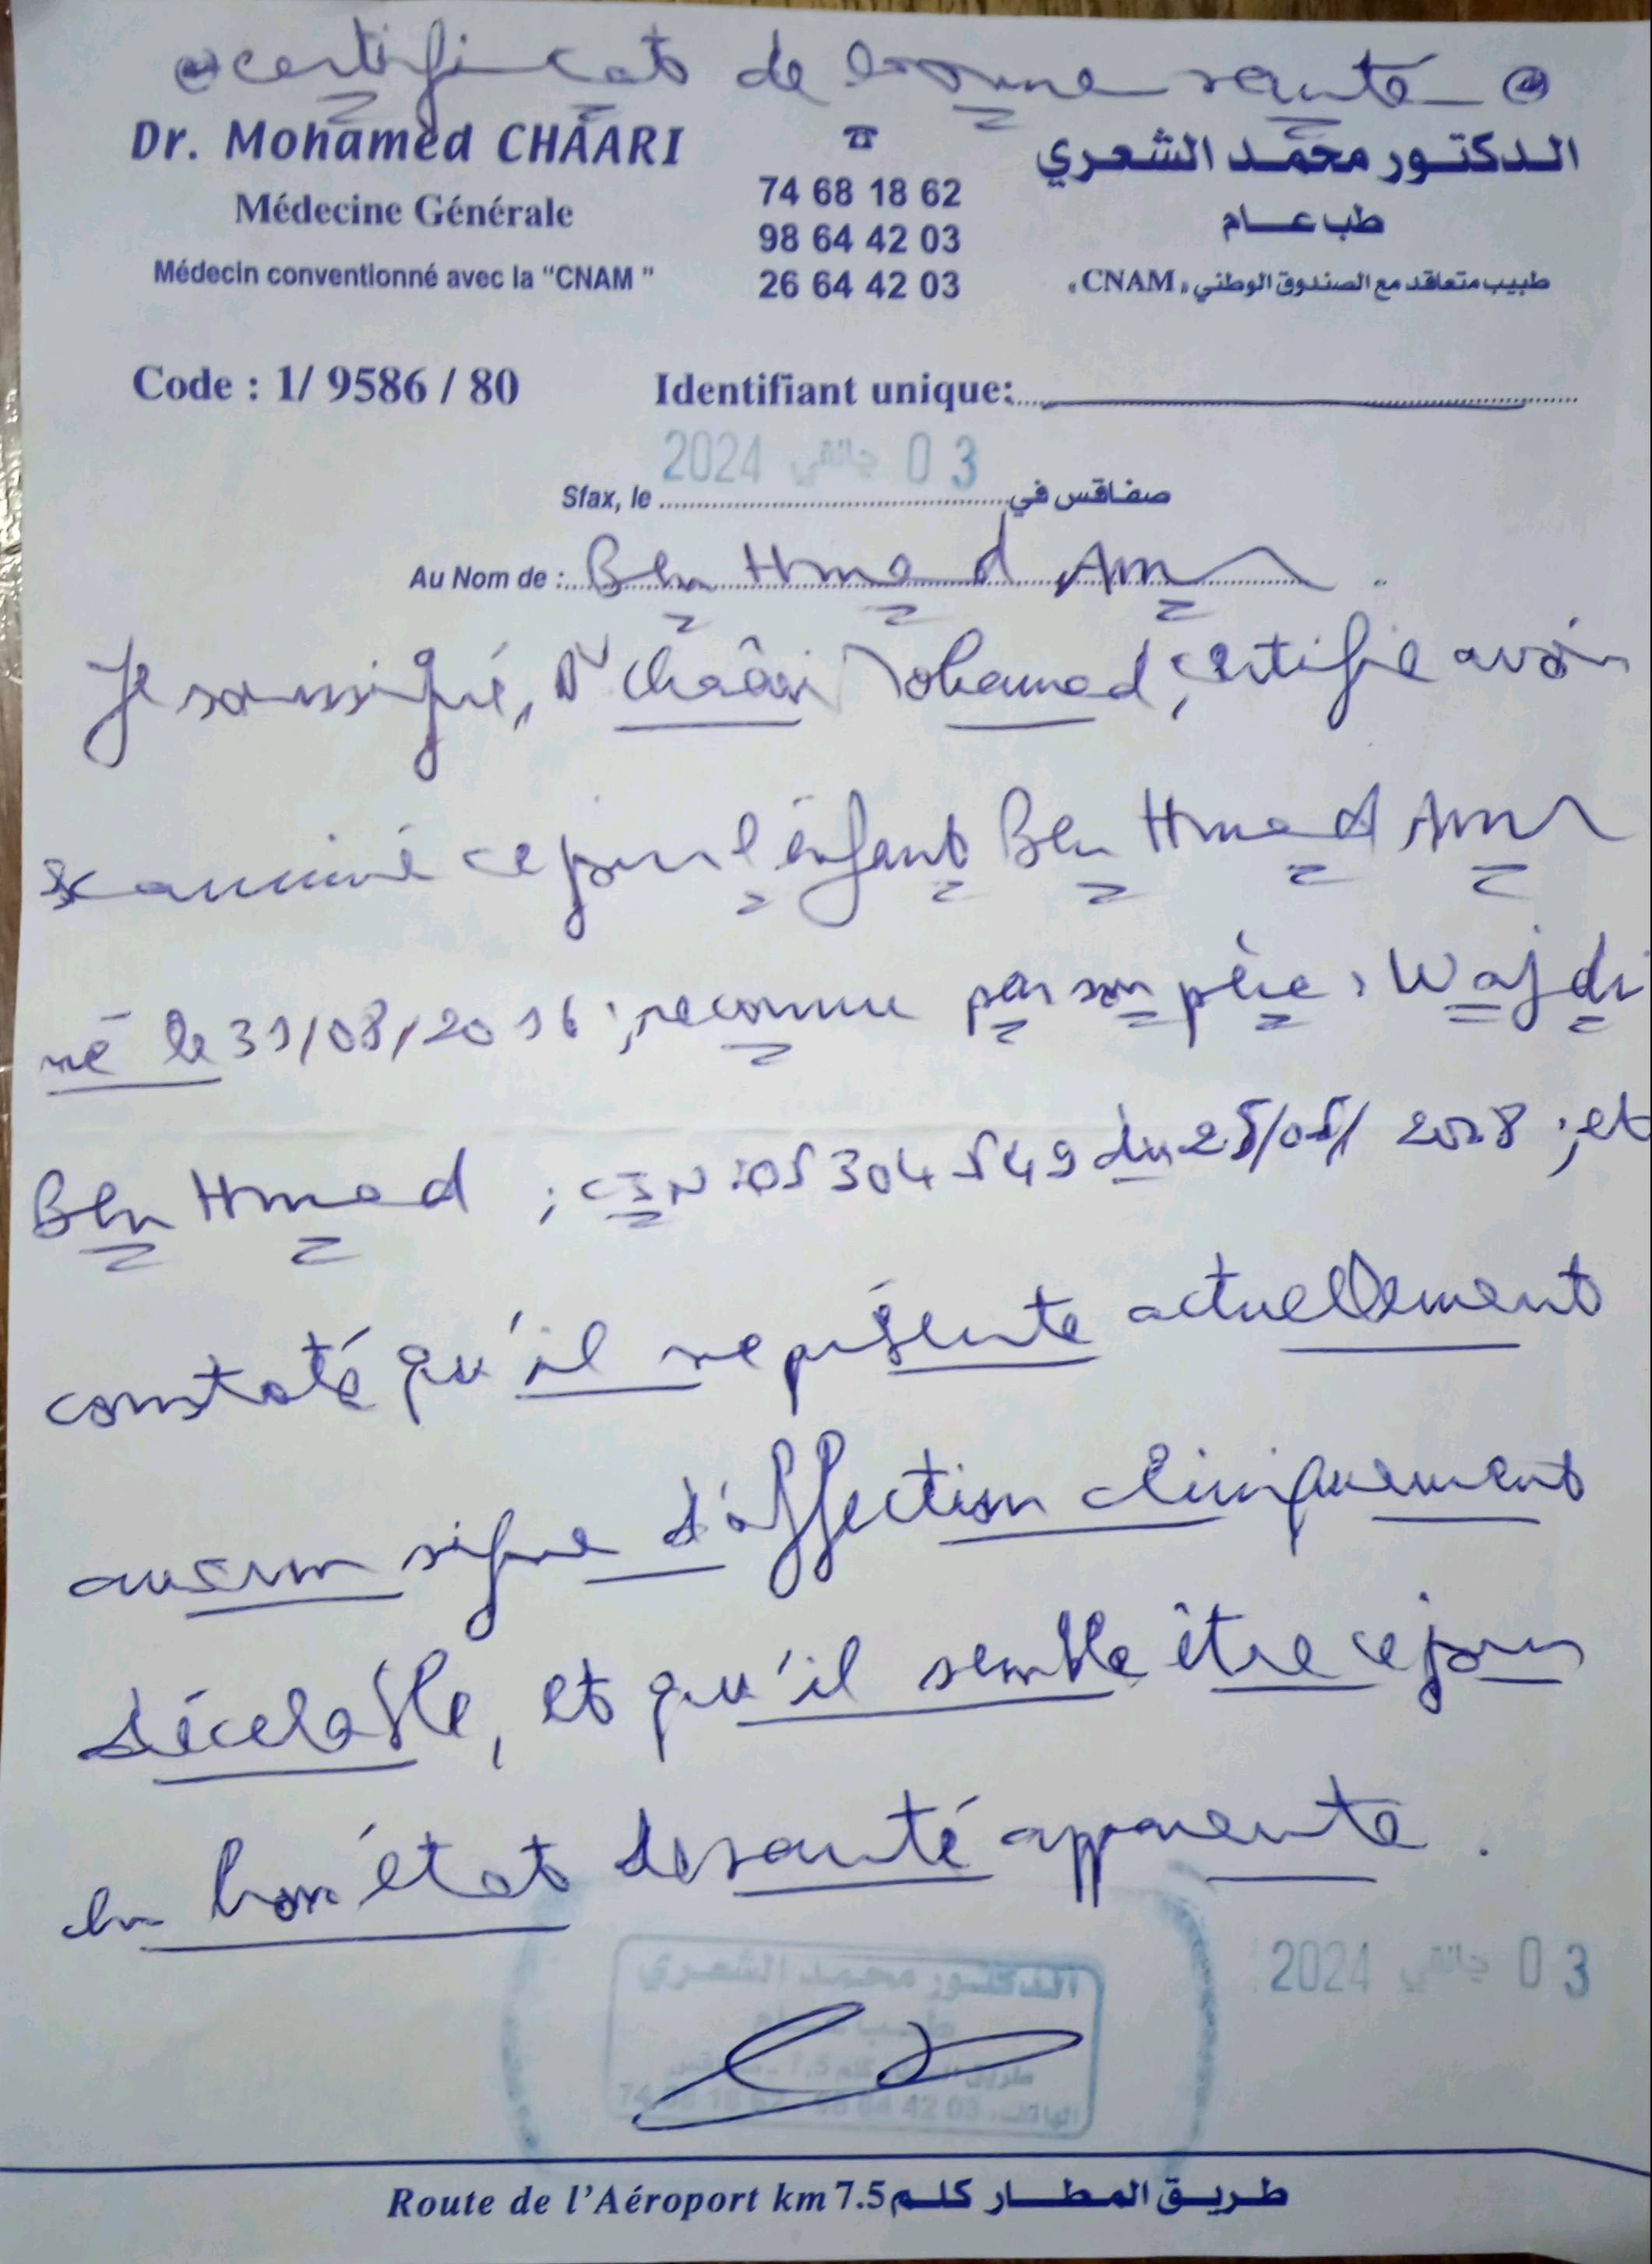 certificat de bonne santé
Dr. Mohamed CHAARI
Médecine Générale
Médecin conventionné avec la "CNAM"
☎
74 68 18 62
98 64 42 03
26 64 42 03
الدكتور محمّد الشعري
طب عام
طبيب متعاقد مع الصندوق الوطني «CNAM»
Code : 1/ 9586 / 80
Identifiant unique:
03 جانفي 2024
Sfax, le صفاقس في
Au Nom de : Ben Hmed
Je soussigné, Dr Chaâri Mohamed, certifie avoir
examiné ce jour l'enfant Ben Hmed
né le 31/08/2016 ; reconnu par son père : Wajdi
Ben Hmed ; CIN : 05304549 du ; et
constaté qu'il ne présente actuellement
aucun signe d'affection cliniquement
décelable, et qu'il semble être ce jour
en bon état de santé apparente.
03 جانفي 2024
الدكتور محمد الشعري
طب عام
طريق المطار كلم 7,5 - صفاقس
الهاتف: 74 68 18 62 - 98 64 42 03
Route de l'Aéroport km 7.5 طريق المطار كلم